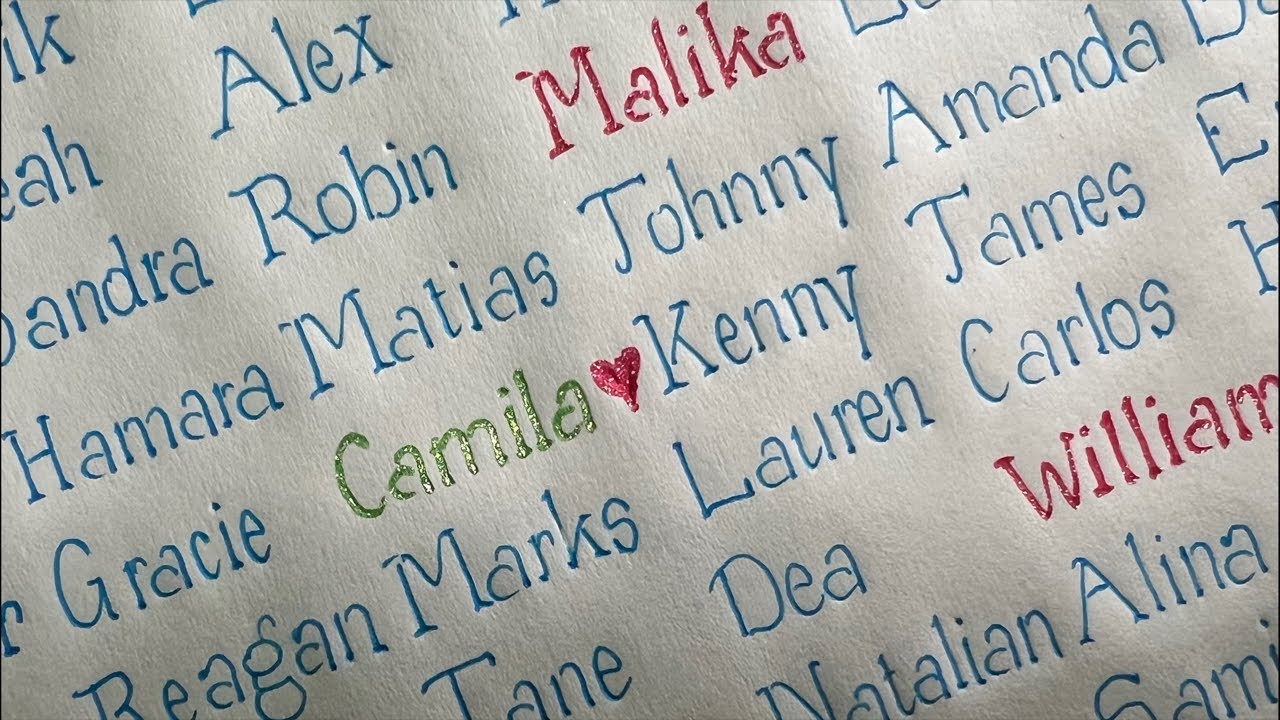 Alex
Robin Malika
Hamara Matias Johnny Amanda
Gracie Camila ♥ Kenny James
Reagan Marks Lauren Carlos
Jane Dea William
Natalian Alina